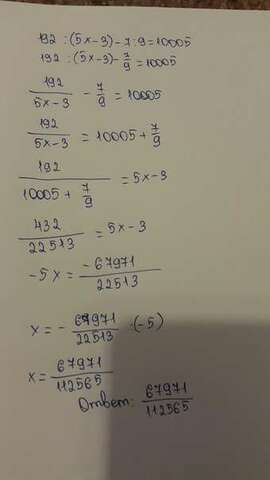 192 : (5x-3) - 7 : 9 = 10005
192 : (5x-3) - 7/9 = 10005
192/(5x-3) - 7/9 = 10005
192/(5x-3) = 10005 + 7/9
192/(10005 + 7/9) = 5x-3
432/22513 = 5x-3
-5x = -67971/22513
x = - 67971/22513 : (-5)
x = 67971/112565
Ответ: 67971/112565